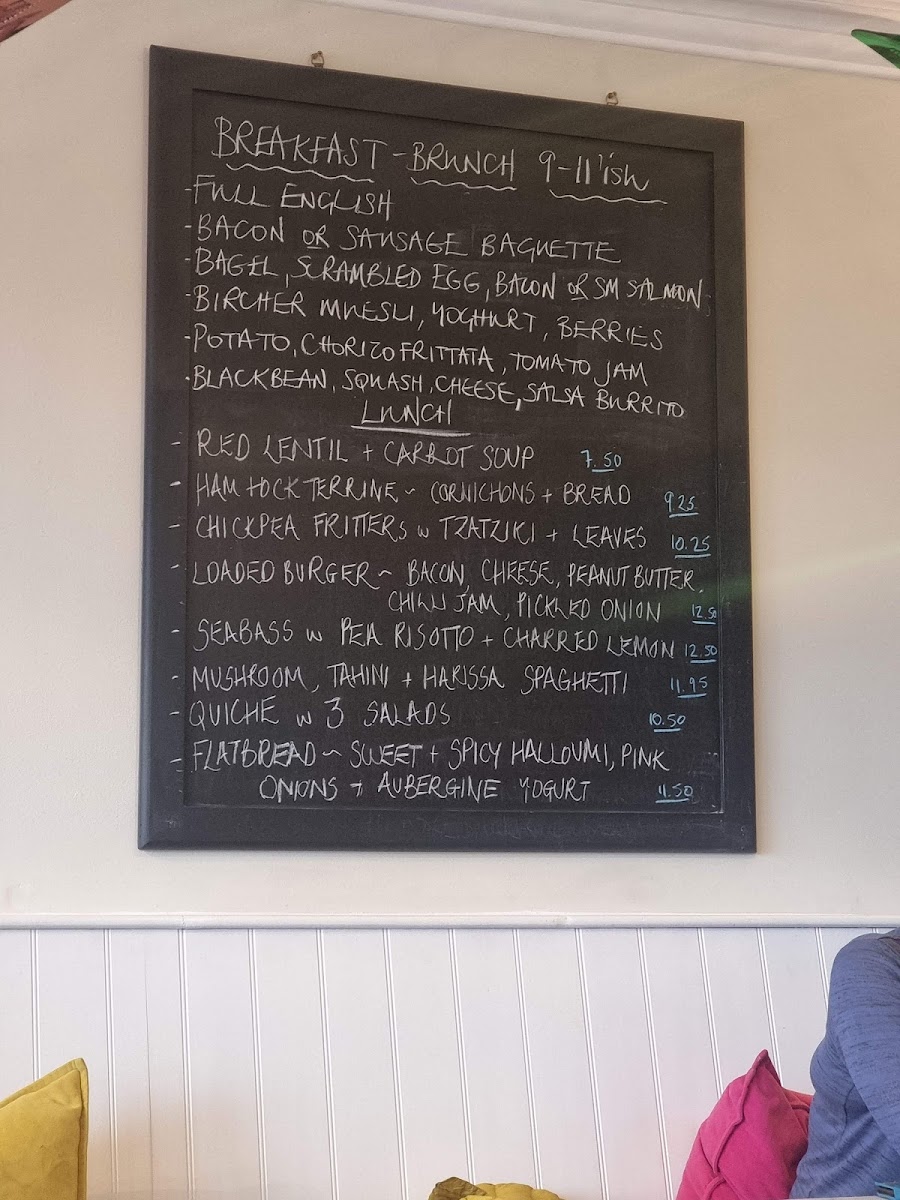 BREAKFAST - BRUNCH 9-11'ish
- FULL ENGLISH
- BACON OR SAUSAGE BAGUETTE
- BAGEL, SCRAMBLED EGG, BACON OR SM SALMON,
- BIRCHER MUESLI, YOGHURT, BERRIES
- POTATO, CHORIZO FRITTATA, TOMATO JAM
- BLACKBEAN, SQUASH, CHEESE, SALSA BURRITO
LUNCH
- RED LENTIL + CARROT SOUP 7.50
- HAM HOCK TERRINE ~ CORNICHONS + BREAD 9.25
- CHICKPEA FRITTERS w TZATZIKI + LEAVES 10.25
- LOADED BURGER ~ BACON, CHEESE, PEANUT BUTTER,
CHILLI JAM, PICKLED ONION 12.50
- SEABASS w PEA RISOTTO + CHARRED LEMON 12.50
- MUSHROOM, TAHINI + HARISSA SPAGHETTI 11.95
- QUICHE w 3 SALADS 10.50
- FLATBREAD ~ SWEET + SPICY HALLOUMI, PINK
ONIONS + AUBERGINE YOGURT 11.50